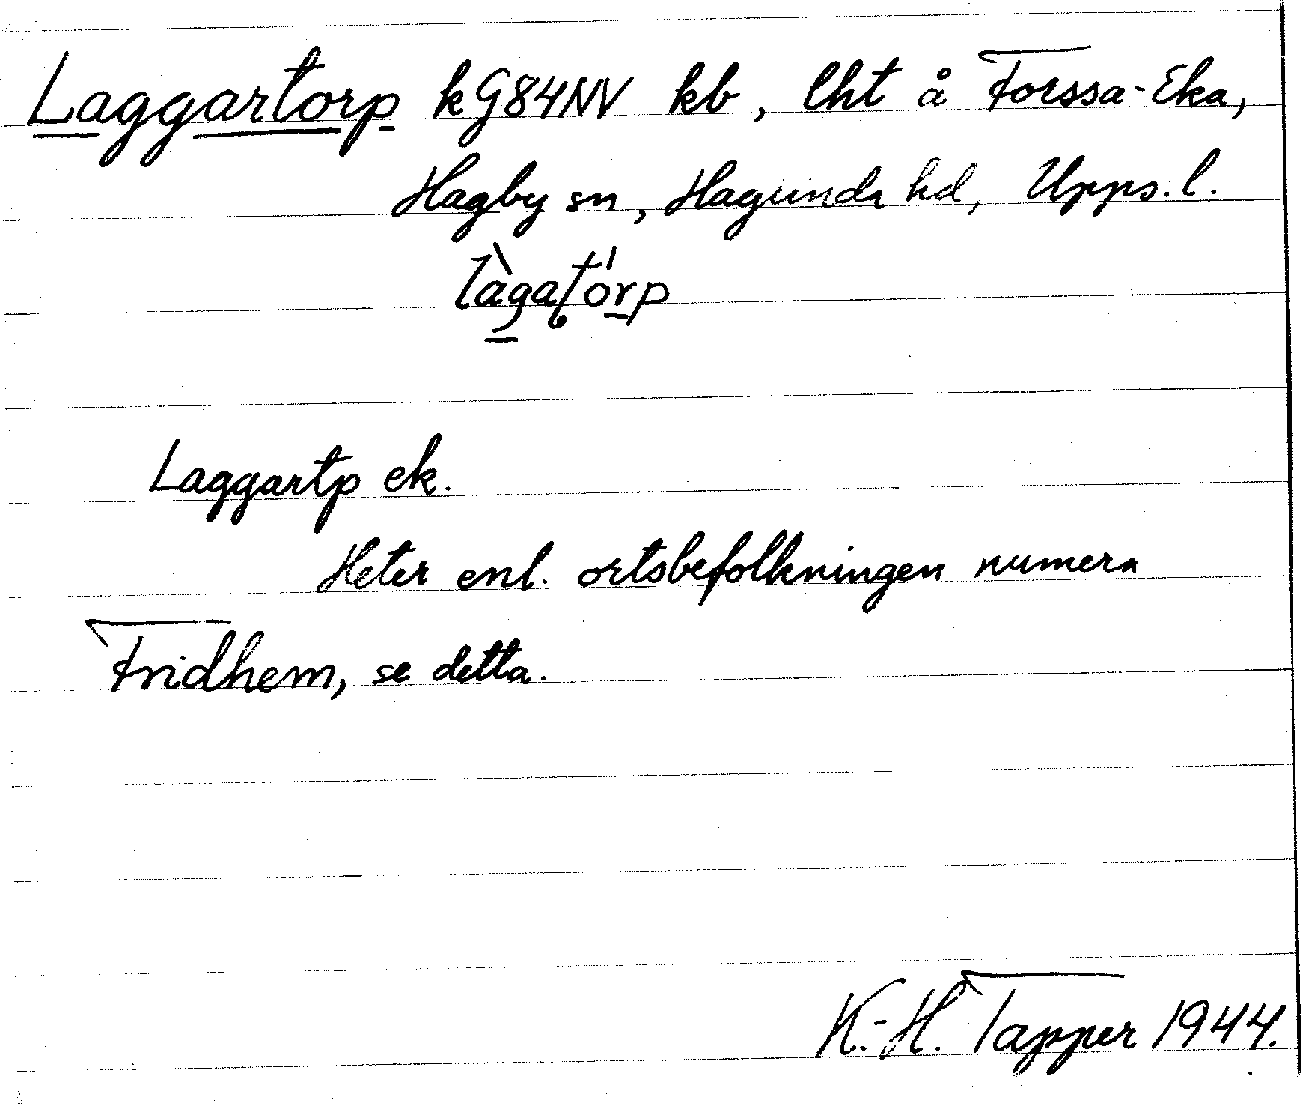 Laggartorp kG84NV kb, lht å Forssa-Eka,
Hagby sn, Hagunda hd, Upps. l.
Laggartp ek.
Heter enl. ortsbefolkningen numera
Fridhem, se detta.
K.-H. Tapper 1944.